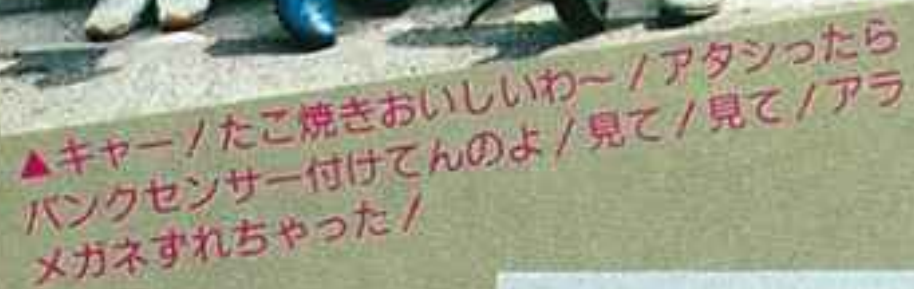 ▲キャー！たこ焼きおいしいわ〜！アタシったら
バンクセンサー付けてんのよ！見て！見て！アラ
メガネずれちゃった！